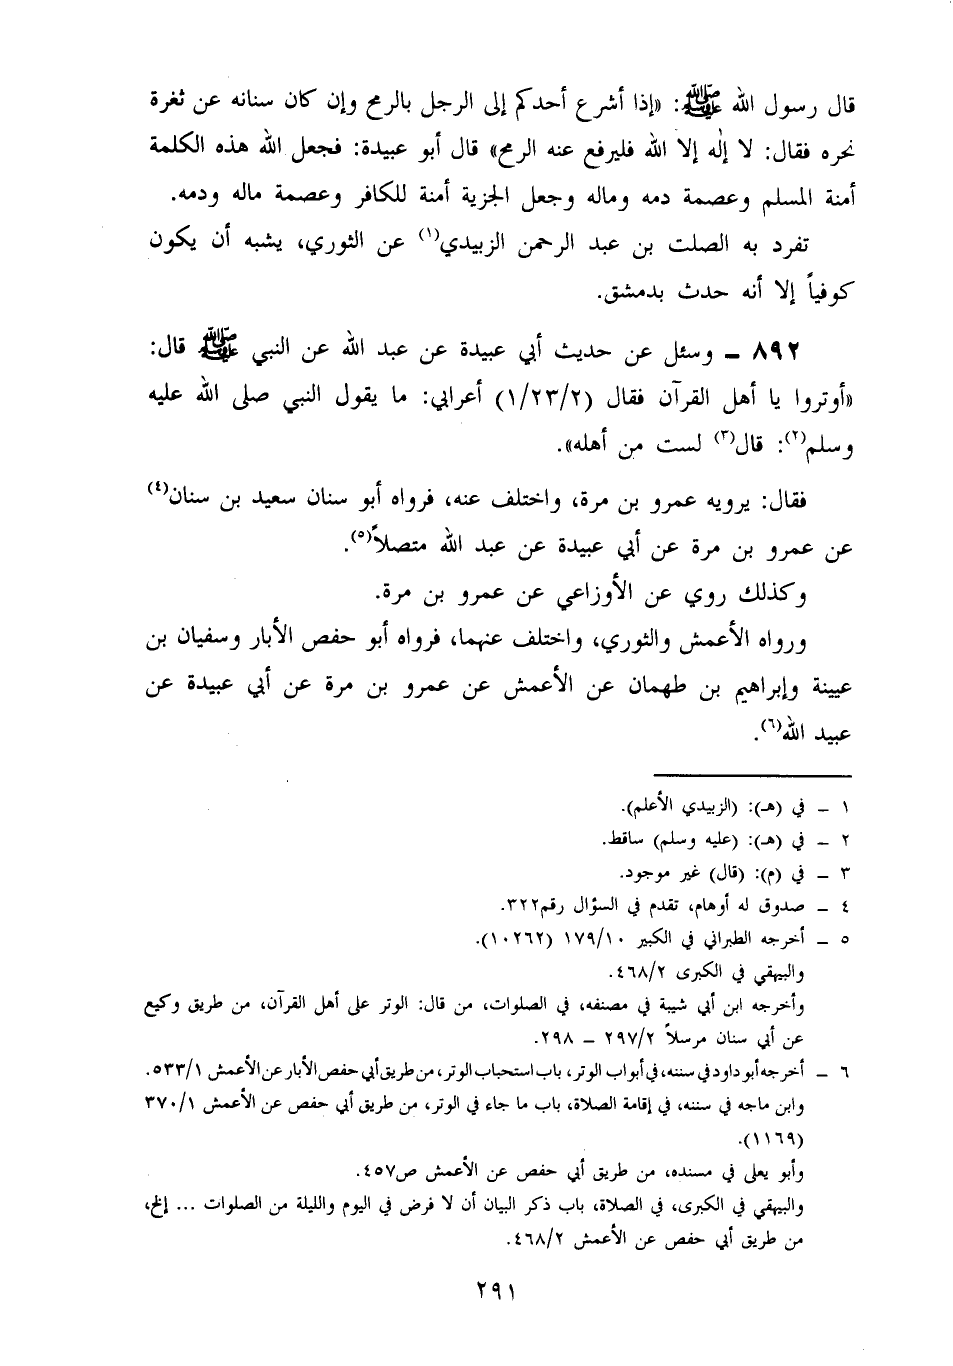 قال رسول الله ﷺ: «إذا أشرع أحدكم إلى الرجل بالرمح وإن كان سنانه عن ثغرة
نحره فقال: لا إله إلا الله فليرفع عنه الرمح» قال أبو عبيدة: فجعل الله هذه الكلمة
أمنة المسلم وعصمة دمه وماله وجعل الجزية أمنة للكافر وعصمة ماله ودمه.
تفرد به الصلت بن عبد الرحمن الزبيدي(١) عن الثوري، يشبه أن يكون
كوفياً إلا أنه حدث بدمشق.
٨٩٢ ـ وسئل عن حديث أبي عبيدة عن عبد الله عن النبي ﷺ قال:
«أوتروا يا أهل القرآن فقال (١/٢٣/٢) أعرابي: ما يقول النبي صلى الله عليه
وسلم(٢): قال(٣) لست من أهله».
فقال: يرويه عمرو بن مرة، واختلف عنه، فرواه أبو سنان سعيد بن سنان(٤)
عن عمرو بن مرة عن أبي عبيدة عن عبد الله متصلاً(٥).
وكذلك روي عن الأوزاعي عن عمرو بن مرة.
ورواه الأعمش والثوري، واختلف عنهما، فرواه أبو حفص الأبار وسفيان بن
عيينة وإبراهيم بن طهمان عن الأعمش عن عمرو بن مرة عن أبي عبيدة عن
عبيد الله(٦).
١ ـ في (هـ): (الزبيدي الأعلم).
٢ ـ في (هـ): (عليه وسلم) ساقط.
٣ ـ في (م): (قال) غير موجود.
٤ ـ صدوق له أوهام، تقدم في السؤال رقم٣٢٢.
٥ ـ أخرجه الطبراني في الكبير ١٧٩/١٠ (١٠٢٦٢).
والبيهقي في الكبرى ٤٦٨/٢.
وأخرجه ابن أبي شيبة في مصنفه، في الصلوات، من قال: الوتر على أهل القرآن، من طريق وكيع
عن أبي سنان مرسلاً ٢٩٧/٢ ـ ٢٩٨.
٦ ـ أخرجه أبو داود في سننه، في أبواب الوتر، باب استحباب الوتر، من طريق أبي حفص الأبار عن الأعمش ٥٣٣/١.
وابن ماجه في سننه، في إقامة الصلاة، باب ما جاء في الوتر، من طريق أبي حفص عن الأعمش ٣٧٠/١
(١١٦٩).
وأبو يعلى في مسنده، من طريق أبي حفص عن الأعمش ص٤٥٧.
والبيهقي في الكبرى، في الصلاة، باب ذكر البيان أن لا فرض في اليوم والليلة من الصلوات ... إلخ،
من طريق أبي حفص عن الأعمش ٤٦٨/٢.
٢٩١